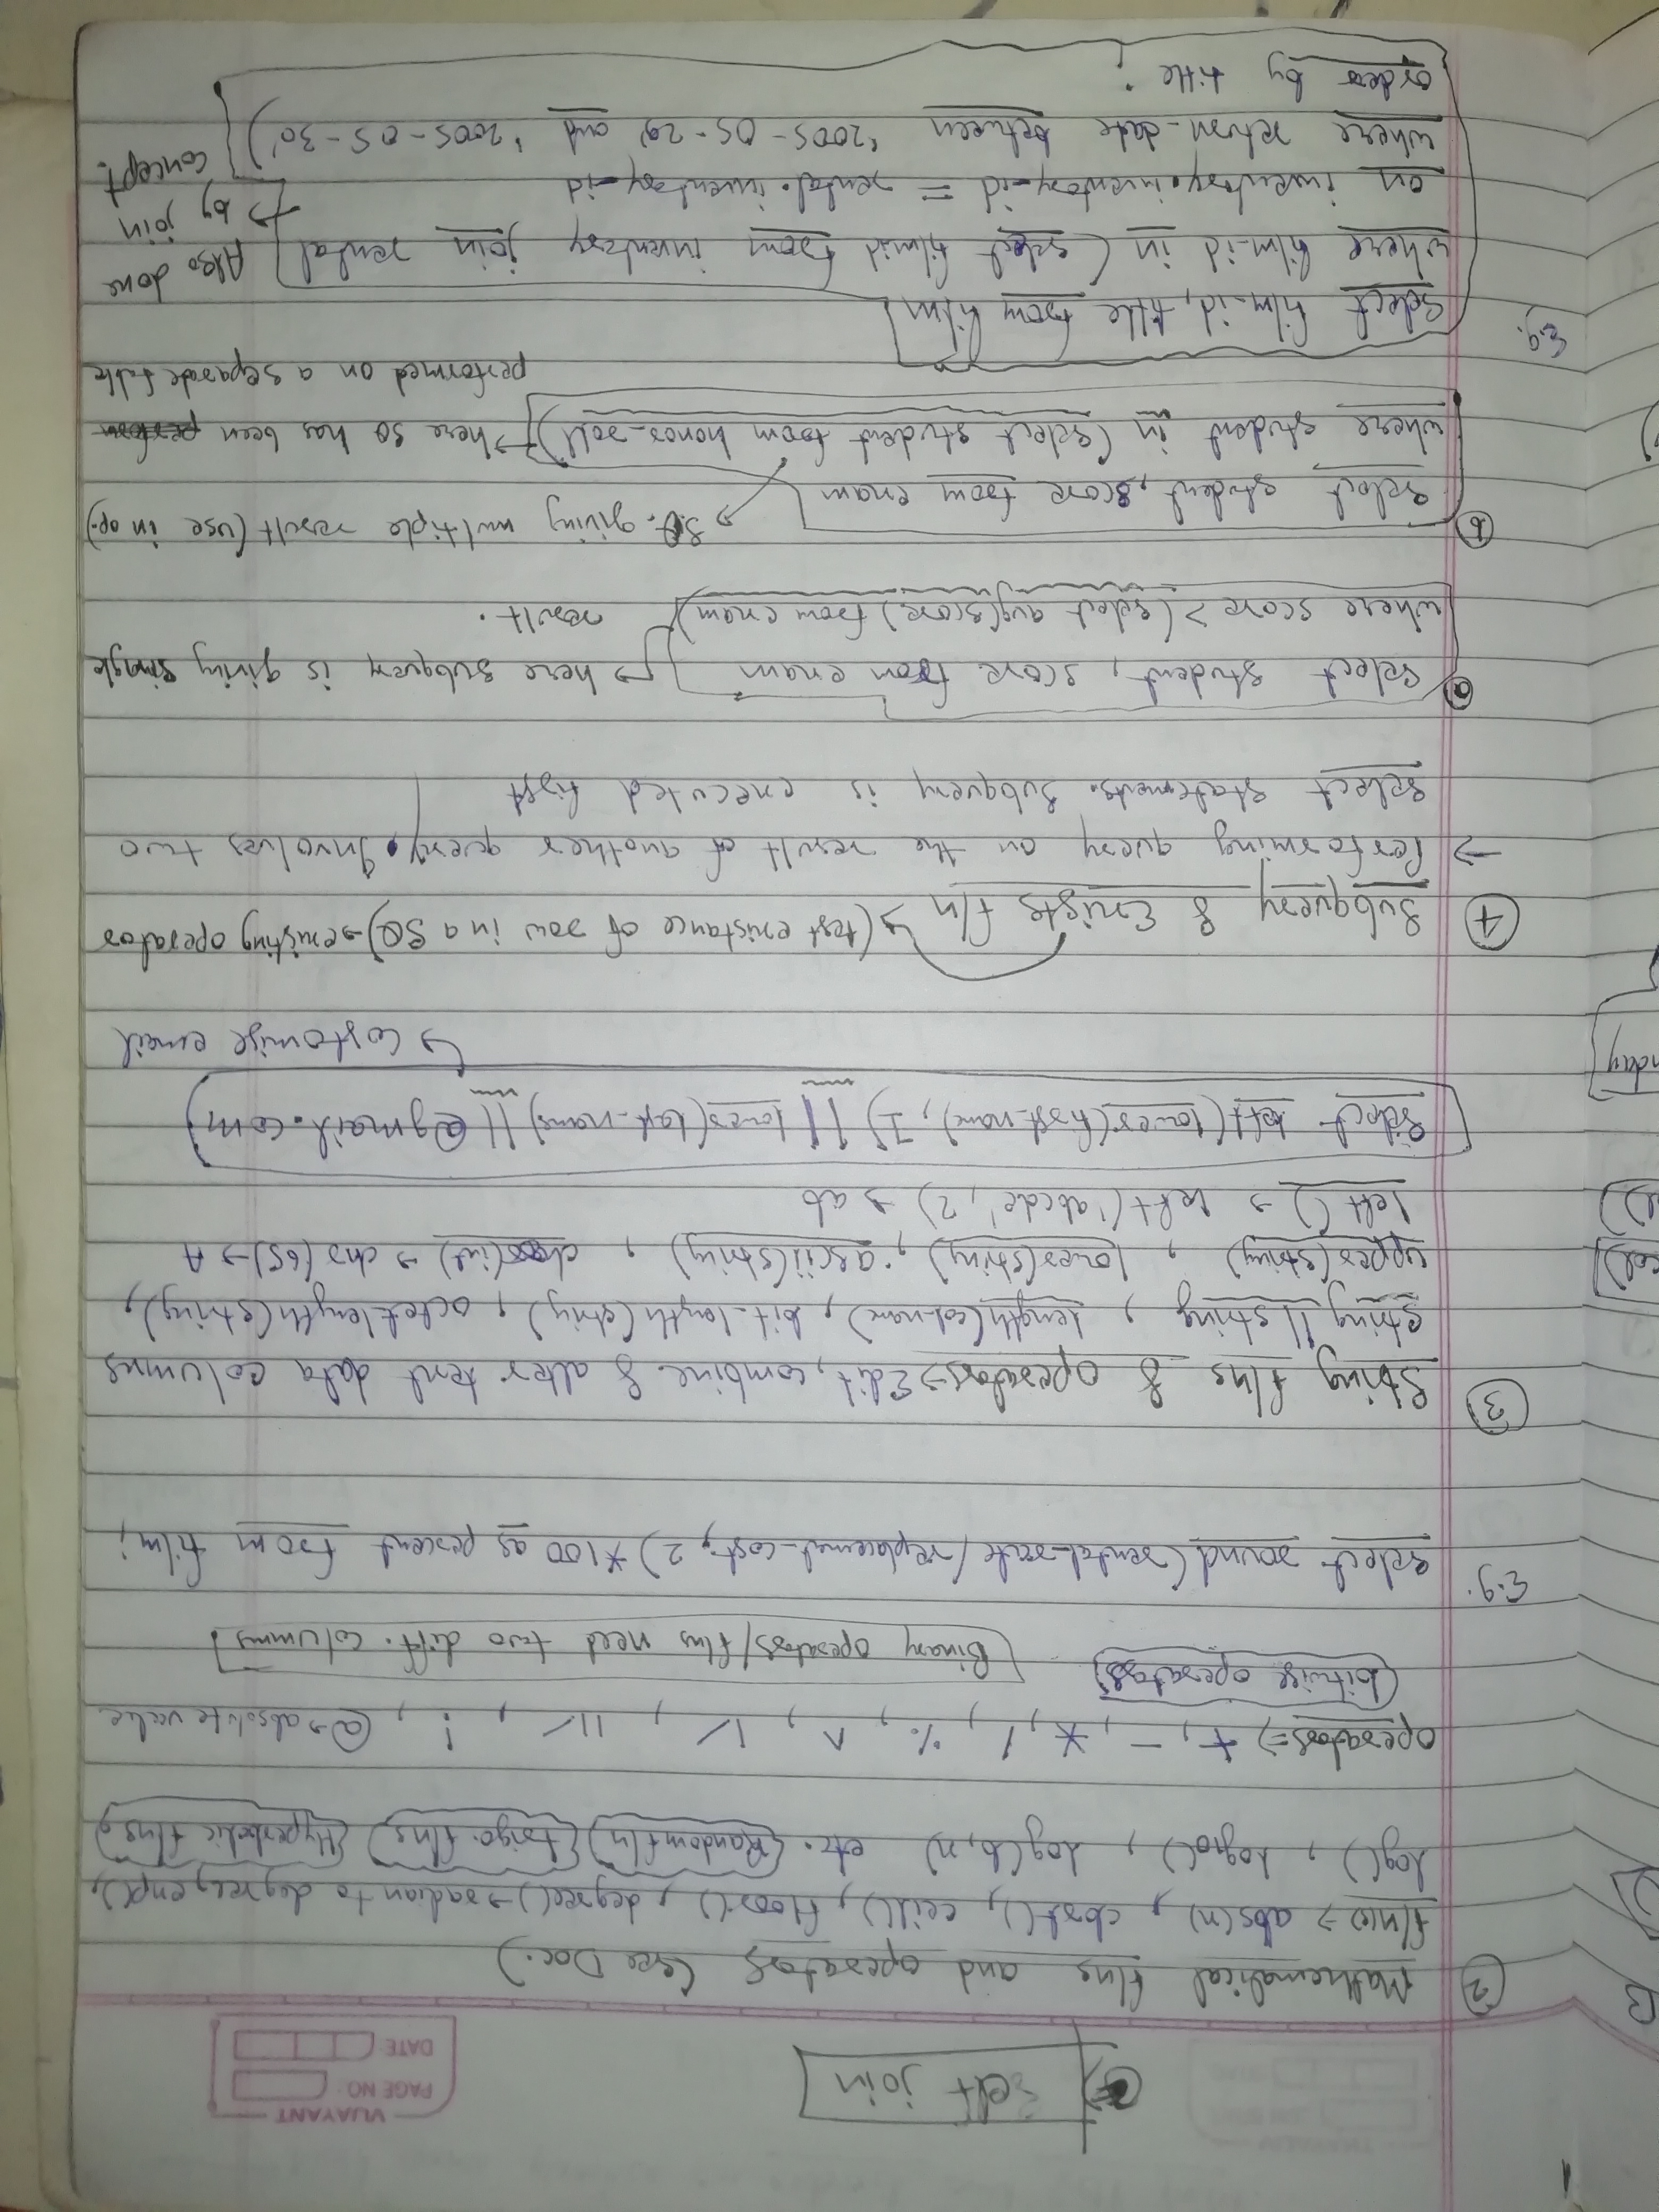 Self join
VIJAYANT
PAGE NO:
DATE:
② Mathematical f/ns and operators (see Doc.)
f/n(s) → abs(n), cbrt(), ceil(), floor(), degree() → radian to degree, exp(),
log(), log10(), log(b,n) etc. {Random f/n} {trigo. f/ns} {Hyperbolic f/ns}
operators ⇒ +, -, *, /, %, ^, |/, ||/, !, @ → absolute value
(bitwise operators)
[Binary operators/f/ns need two diff. columns]
E.g.
select round(rental_rate/replacement_cost, 2) *100 as percent from film;
③ String f/ns & operators → Edit, combine & alter text data columns
string || string, length(col_name), bit_length(string), octet length(string),
upper(string), lower(string), ascii(string), chr(int) → chr(65) → A
left() → left('abcde', 2) → ab
Select left(lower(first_name), 1) || lower(last_name) || @gmail.com
↳ costomise email
④ Subquery & Exists f/n → (test existance of row in a SQ) → existing operator
→ Performing query on the result of another query. Involves two
select statements. Subquery is executed first
ⓐ select student, score from exam
→ here subquery is giving single
where score > (select avg(score) from exam)
result.
ⓑ → S.Q. giving multiple result (use in op.)
select student, score from exam
where student in (select student from honor_roll) → here SQ has been perform
performed on a separate table
E.g.
Select film_id, title from film
where film_id in (select filmid from inventory join rental
on inventory.inventory_id = rental.inventory_id
where return_date between '2005-05-29' and '2005-05-30')
order by title ;
→ Also done
by join
concept.
B
col)
nday